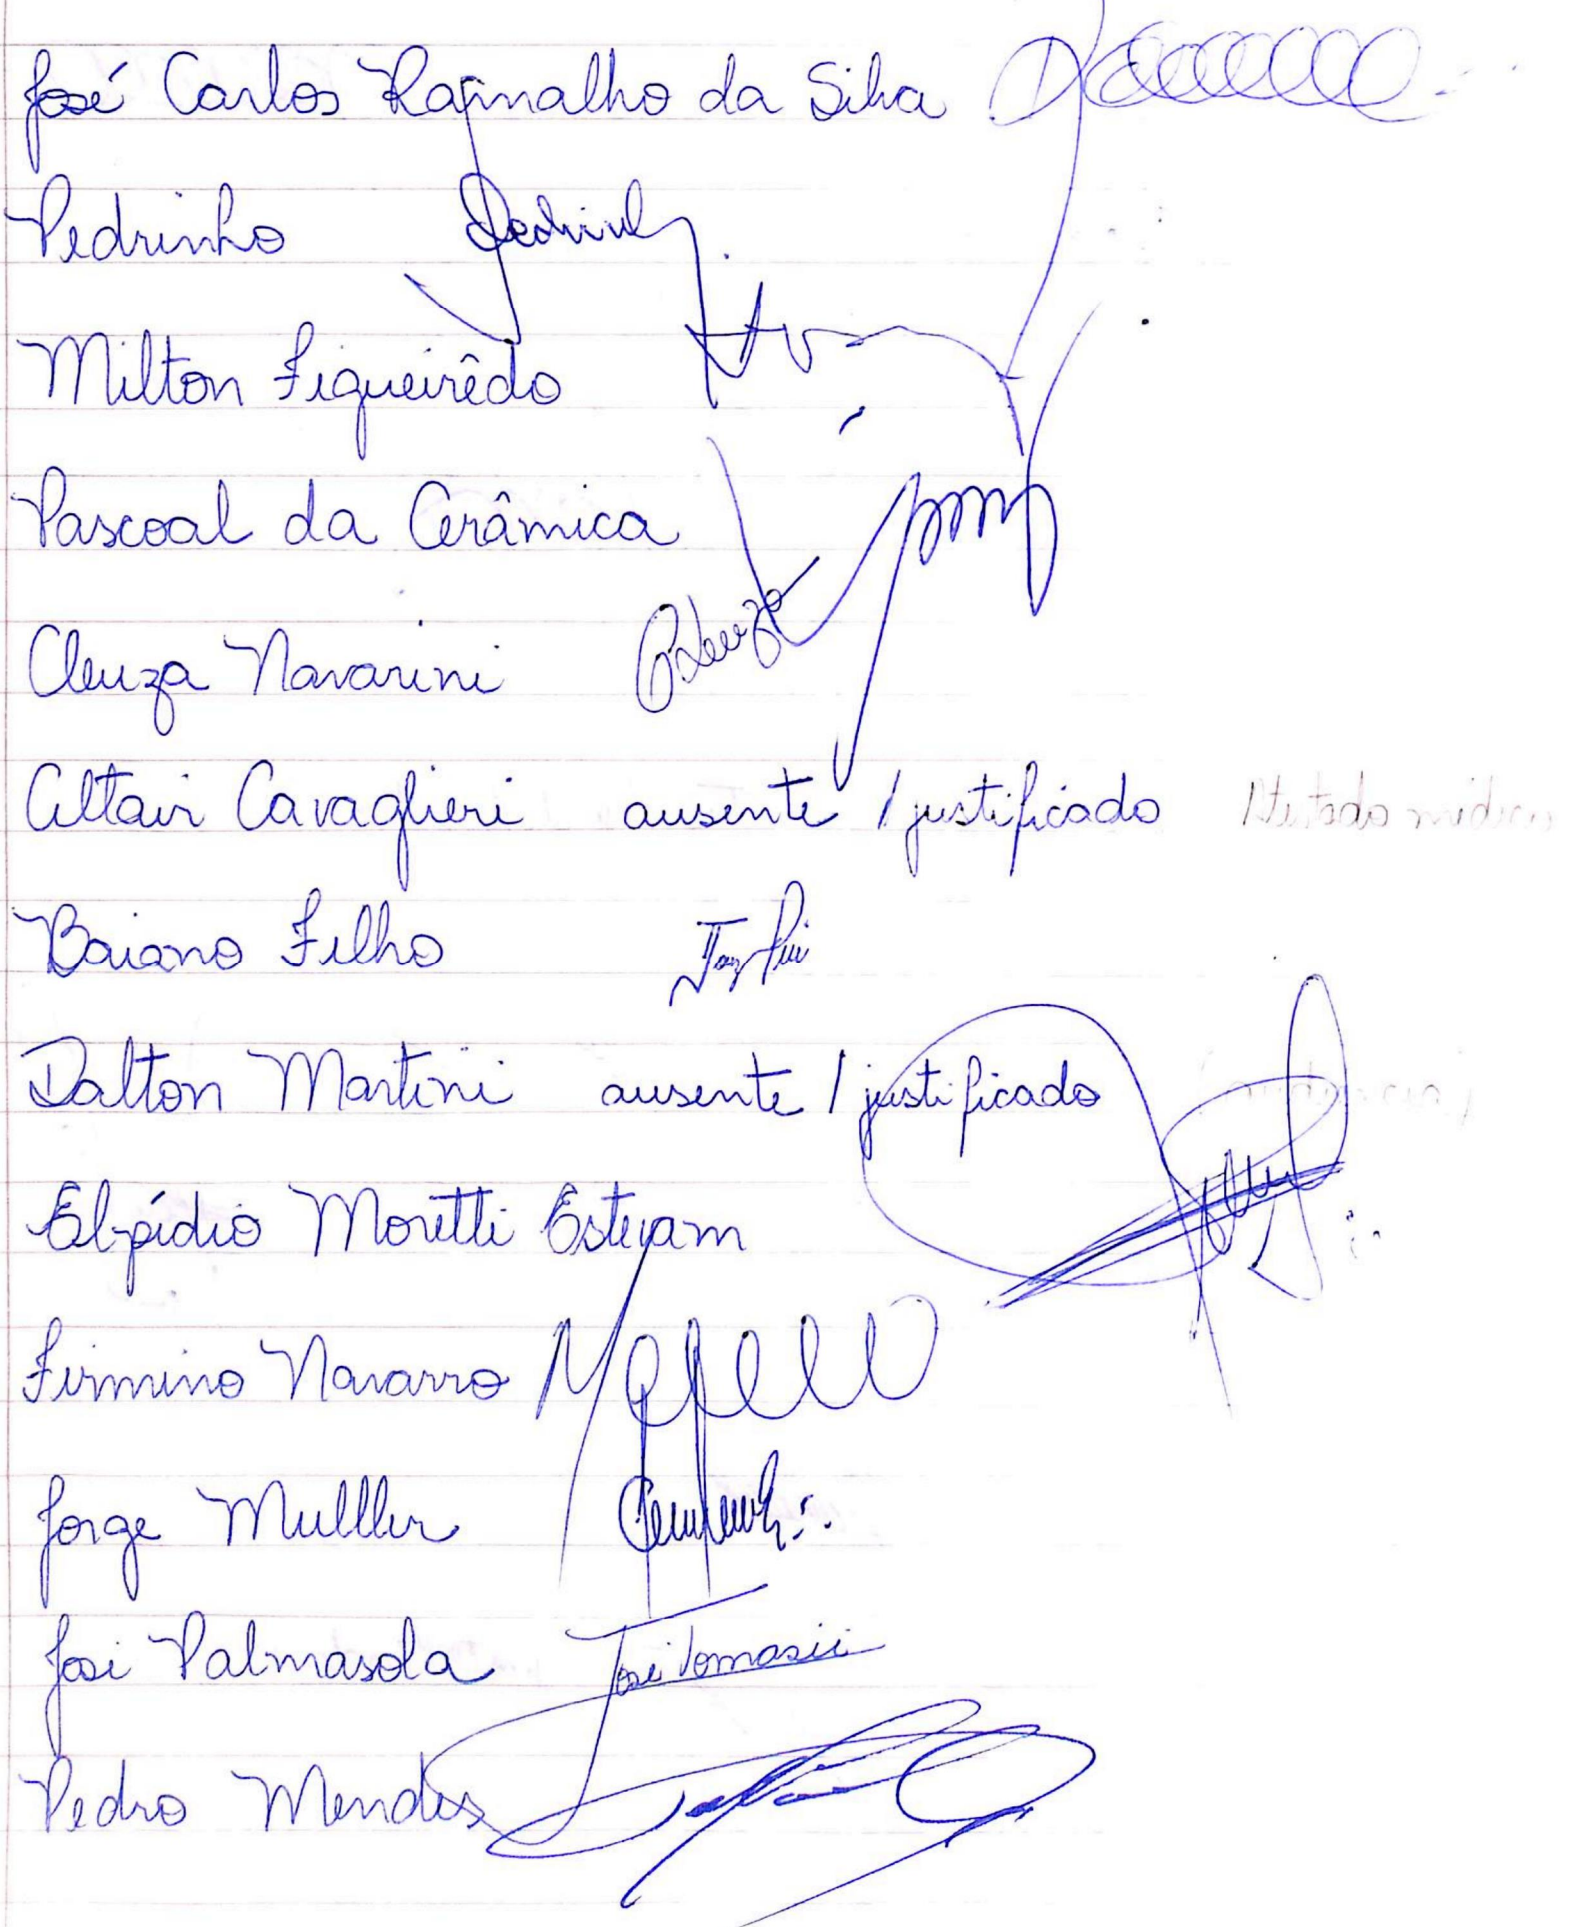 José Carlos Ramalho da Silva
Pedrinho
Milton Figueirêdo
Pascoal da Cerâmica
Cleuza Navarini Cleuza
Altair Cavaglieri ausente / justificado Atestado médico
Baiano Filho
Dalton Martini ausente / justificado
Elpídio Moretti Estevam
Firmino Navarro
Jorge Mulller
José Palmasola José Tomasii
Pedro Mendes